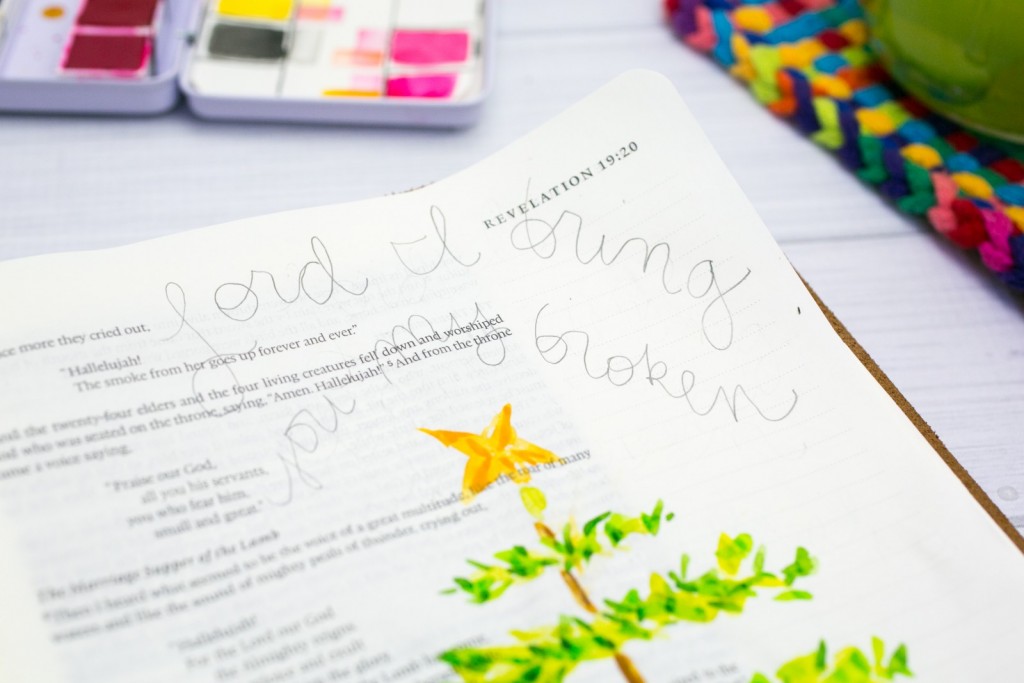 REVELATION 19:20
Lord I bring
you my broken
ce more they cried out,
"Hallelujah!
The smoke from her goes up forever and ever."
nd the twenty-four elders and the four living creatures fell down and worshiped
od who was seated on the throne, saying, "Amen. Hallelujah!" 5 And from the throne
ame a voice saying,
"Praise our God,
all you his servants,
you who fear him,
small and great."
The Marriage Supper of the Lamb
Then I heard what seemed to be the voice of a great multitude, like the roar of many
waters and like the sound of mighty peals of thunder, crying out,
"Hallelujah!
For the Lord our God
the Almighty reigns.
and exult
the glory